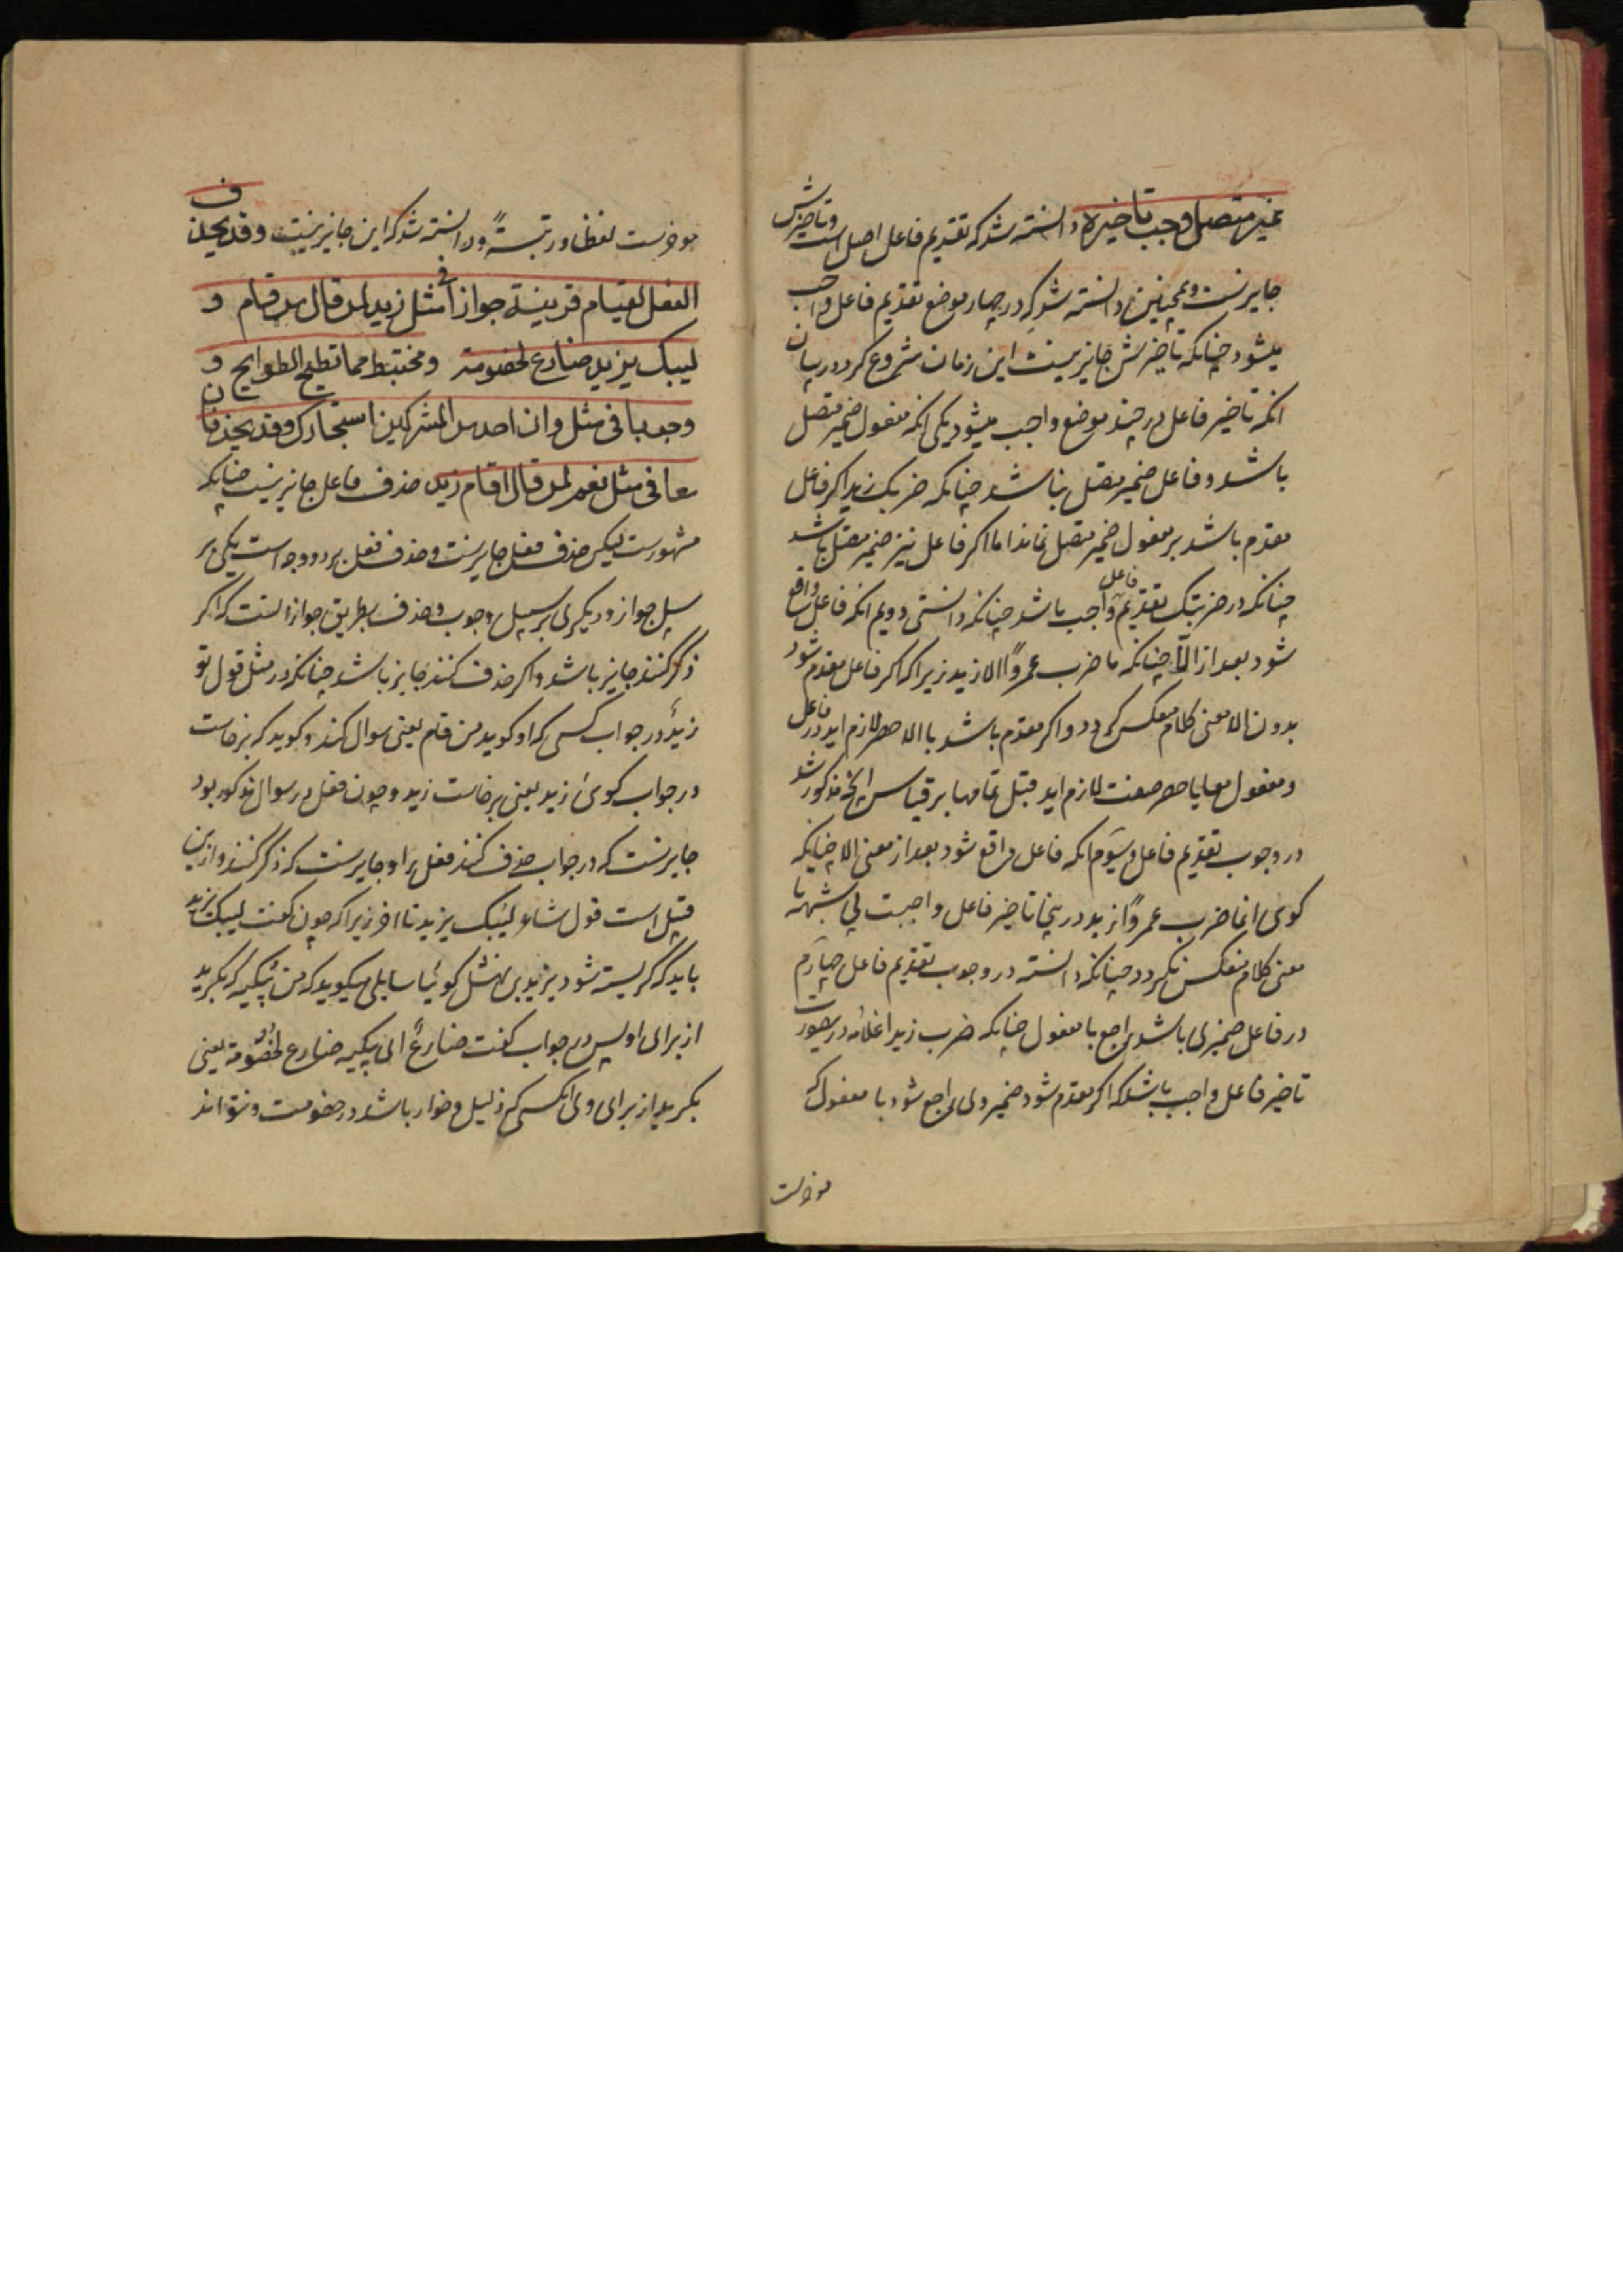 غیر متصل وجب تاخیره دانسته شد که تقدیم فاعل اصل است و تاخیرش
جایزست و همچنین دانسته شد که در چهار موضع تقدیم فاعل واجب
میشود چنانکه تاخیرش جایز نیست این زمان شروع کرد در بیان
انکه تاخیر فاعل در چند موضع واجب میشود یکی انکه مفعول ضمیر متصل
باشد و فاعل ضمیر متصل نباشد چنانکه ضربک زید اکر فاعل
مقدم باشد بر مفعول ضمیر متصل نماند اما اکر فاعل نیز ضمیر متصل باشد
چنانکه در ضربتک تقدیم فاعل واجب باشد چنانکه دانستی دویم انکه فاعل واقع
شود بعد از الّا چنانکه ما ضرب عمروًا الا زید زیرا که اکر فاعل مقدم شود
بدون الا معنی کلام منعکس کردد و اکر مقدم باشد با الا حصر لازم اید در فاعل
و مفعول معا یا حصر صفت لازم اید قبل تمامها بر قیاس انچه مذکور شد
در وجوب تقدیم فاعل و سوَم انکه فاعل واقع شود بعد از معنی الا چنانکه
کوی انما ضرب عمروًا زید در ینجا تاخیر فاعل واجبست لی شبهه تا
معنی کلام منعکس نکردد چنانکه دانسته در وجوب تقدیم فاعل چهارم
در فاعل ضمیری باشد راجع با مفعول چنانکه ضرب زیدا غلامه در یصورت
تاخیر فاعل واجب باشد که اکر مقدم شود ضمیر وی راجع شود با مفعول که
موخرست
موخرست لفظا و رتبةً و دانسته شد که این جایز نیست و قد یحذف
الفعل لقیام قرینة جوازا فی مثل زید لمن قال من قام و
لیبک یزید ضارع لخصومة و مختبط مما تطیح الطوایح و
وجوبا فی مثل وان احد من المشرکین استجارک وقد یحذفان
معا فی مثل نعم لمن قال اقام زید حذف فاعل جایز نیست چنانکه
مشهورست لیکن حذف فعل جایزست و حذف فعل بر دو وجه است یکی بر
سبیل جواز و دیکری بر سبیل وجوب و حذف بطریق جواز انست که اکر
ذکر کنند جایز باشد و اکر حذف کنند جایز باشد چنانکه در مثل قول تو
زیدٌ در جواب کسی که او کوید من قام یعنی سوال کند و کوید که برخاست
در جواب کوی زید یعنی برخاست زید و چون فعل در سوال مذکور بود
جایزست که در جواب حذف کنند فعل را و جایزست که ذکر کنند و ازین
قبیل است قول شاعر لیبک یزید تا اخر زیرا که چون کفت لیبک یزید
باید که کریسته شود یزید بن نهشل کوئیا سایلی میکوید که من یبکیه که بکرید
از برای او پس در جواب کفت ضارعٌ ای یبکیه ضارع لخصومة یعنی
بکرید از برای وی انکس که ذلیل و خوار باشد در خصومت و نتواند